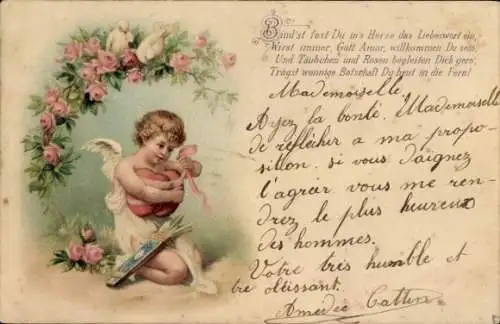 Bind'st fest Du in's Herze das Liebeswort ein,
Wirst immer, Gott Amor, willkommen Du sein.
Und Täubchen und Rosen begleiten Dich gern,
Trägst wonnige Botschaft Du heut in die Fern!
Mademoiselle,
Ayez la bonté, Mademoiselle
de réfléchir a ma propo-
sition. si vous daignez
l'agréer vous me ren-
drez le plus heureux
des hommes.
Votre très humble et
tre obéissant.
Amédée